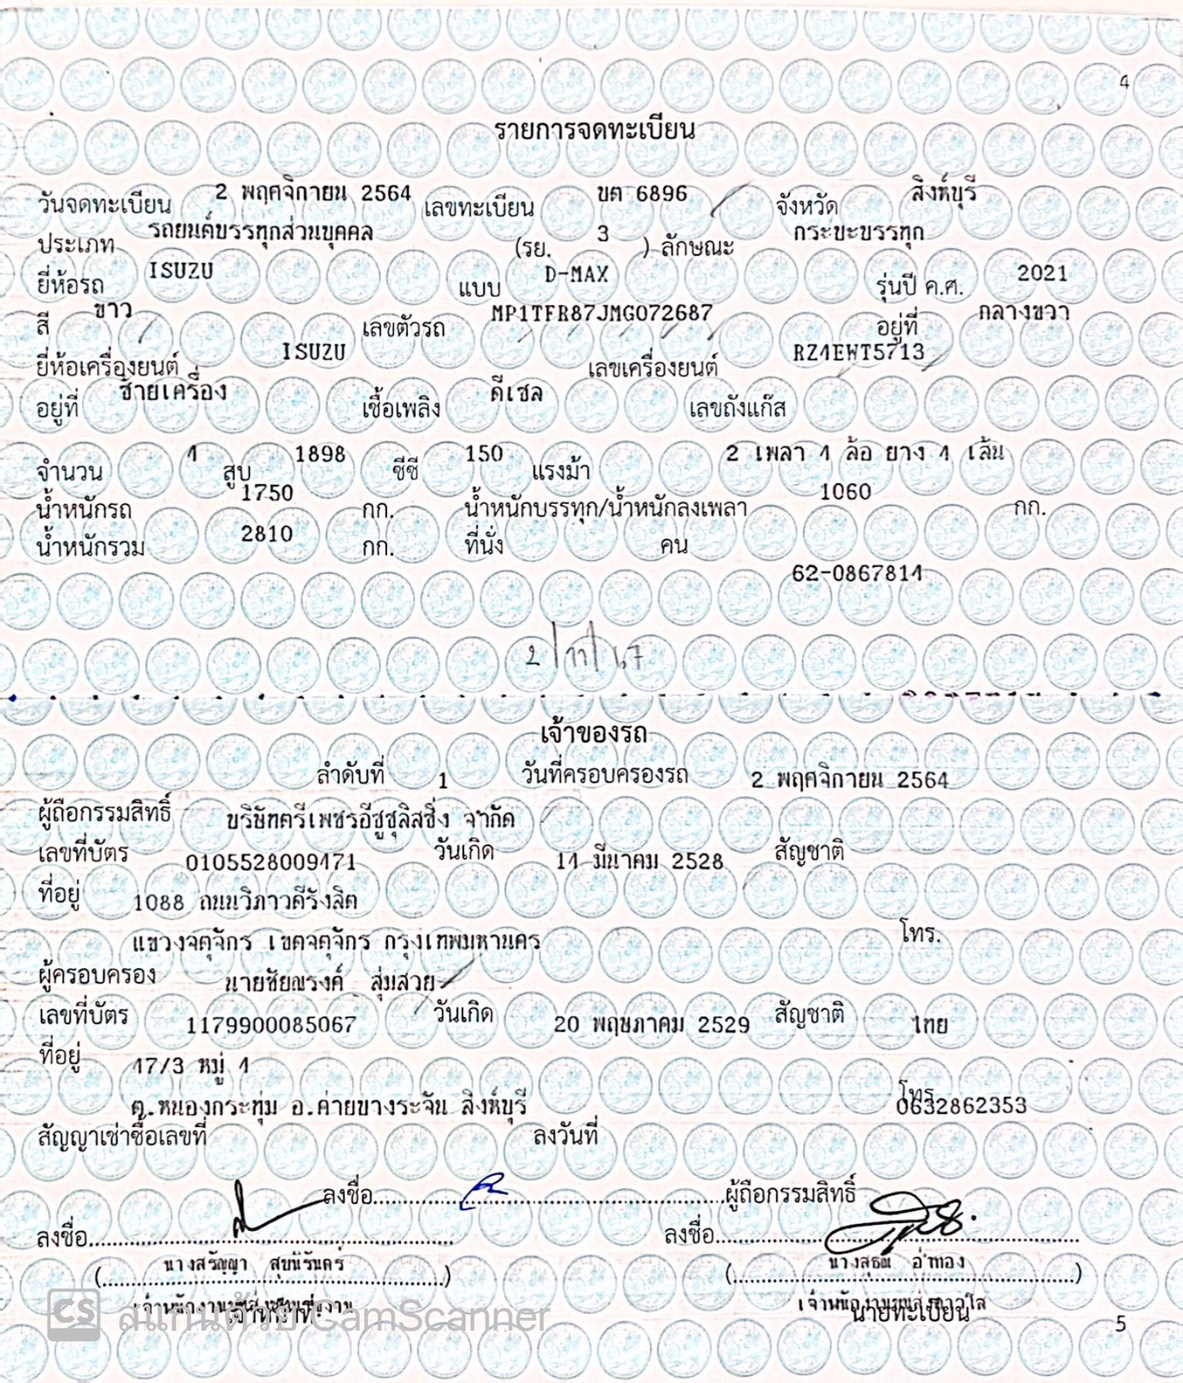 4
รายการจดทะเบียน
วันจดทะเบียน 2 พฤศจิกายน 2564 เลขทะเบียน ขต 6896 จังหวัด สิงห์บุรี
ประเภท รถยนต์บรรทุกส่วนบุคคล (รย. 3 ) ลักษณะ กระบะบรรทุก
ยี่ห้อรถ ISUZU แบบ D-MAX รุ่นปี ค.ศ. 2021
สี ขาว เลขตัวรถ MP1TFR87JMG072687 อยู่ที่ กลางขวา
ยี่ห้อเครื่องยนต์ ISUZU เลขเครื่องยนต์ RZ4EWT5713
อยู่ที่ ซ้ายเครื่อง เชื้อเพลิง ดีเซล เลขถังแก๊ส
จำนวน 4 สูบ 1898 ซีซี 150 แรงม้า 2 เพลา 4 ล้อ ยาง 4 เส้น
น้ำหนักรถ 1750 กก. น้ำหนักบรรทุก/น้ำหนักลงเพลา 1060 กก.
น้ำหนักรวม 2810 กก. ที่นั่ง คน
62-0867814
2/11/67
เจ้าของรถ
ลำดับที่ 1 วันที่ครอบครองรถ 2 พฤศจิกายน 2564
ผู้ถือกรรมสิทธิ์ บริษัทตรีเพชรอีซูซุลิสซิ่ง จำกัด
เลขที่บัตร 0105528009471 วันเกิด 14 มีนาคม 2528 สัญชาติ
ที่อยู่ 1088 ถนนวิภาวดีรังสิต
แขวงจตุจักร เขตจตุจักร กรุงเทพมหานคร โทร.
ผู้ครอบครอง นายชัยณรงค์ สุ่มสวย
เลขที่บัตร 1179900085067 วันเกิด 20 พฤษภาคม 2529 สัญชาติ ไทย
ที่อยู่ 47/3 หมู่ 4
ต.หนองกระทุ่ม อ.ค่ายบางระจัน สิงห์บุรี โทร. 0632862353
สัญญาเช่าซื้อเลขที่ ลงวันที่
ลงชื่อ ผู้ถือกรรมสิทธิ์
ลงชื่อ ลงชื่อ
(นางสรัญญา สุขนิรันดร์) (นางสุธณ อ่ำทอง)
เจ้าหน้าที่ นายทะเบียน
CS สแกนด้วย CamScanner 5